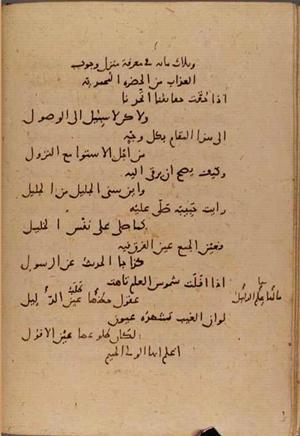 وثلاث مائة في معرفة منزل وجوب
العذاب من الحضرة المحمدية
اذا حققت حقائقنا اتحدنا
ولا كن لا سبيل الى الوصول
الى هذا المقام بكل وجه
من اجل الاستوا مع النزول
وكيف يصح ان يرقى اليه
واين سنى الجليل من الجليل
رايت حبيبه صلى عليه
كما صلى على نفس الخليل
فعين الجمع عين الفرق فيه
كذا جا الحديث عن الرسول
اذا افلت شموس العلم تاهت
عقول حكمها عين الدليل
لو ان الغيب تشهده عيون
لكان طلوعها عين الافول
اعلم ايها الولى الحميم